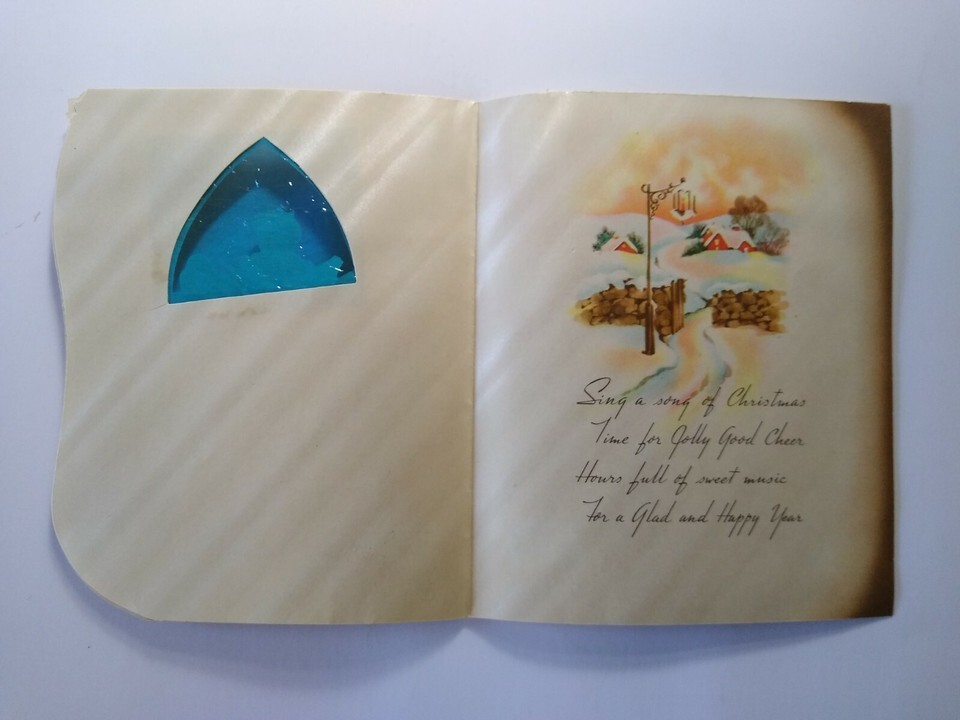 Sing a song of Christmas
Time for Jolly Good Cheer
Hours full of sweet music
For a Glad and Happy Year